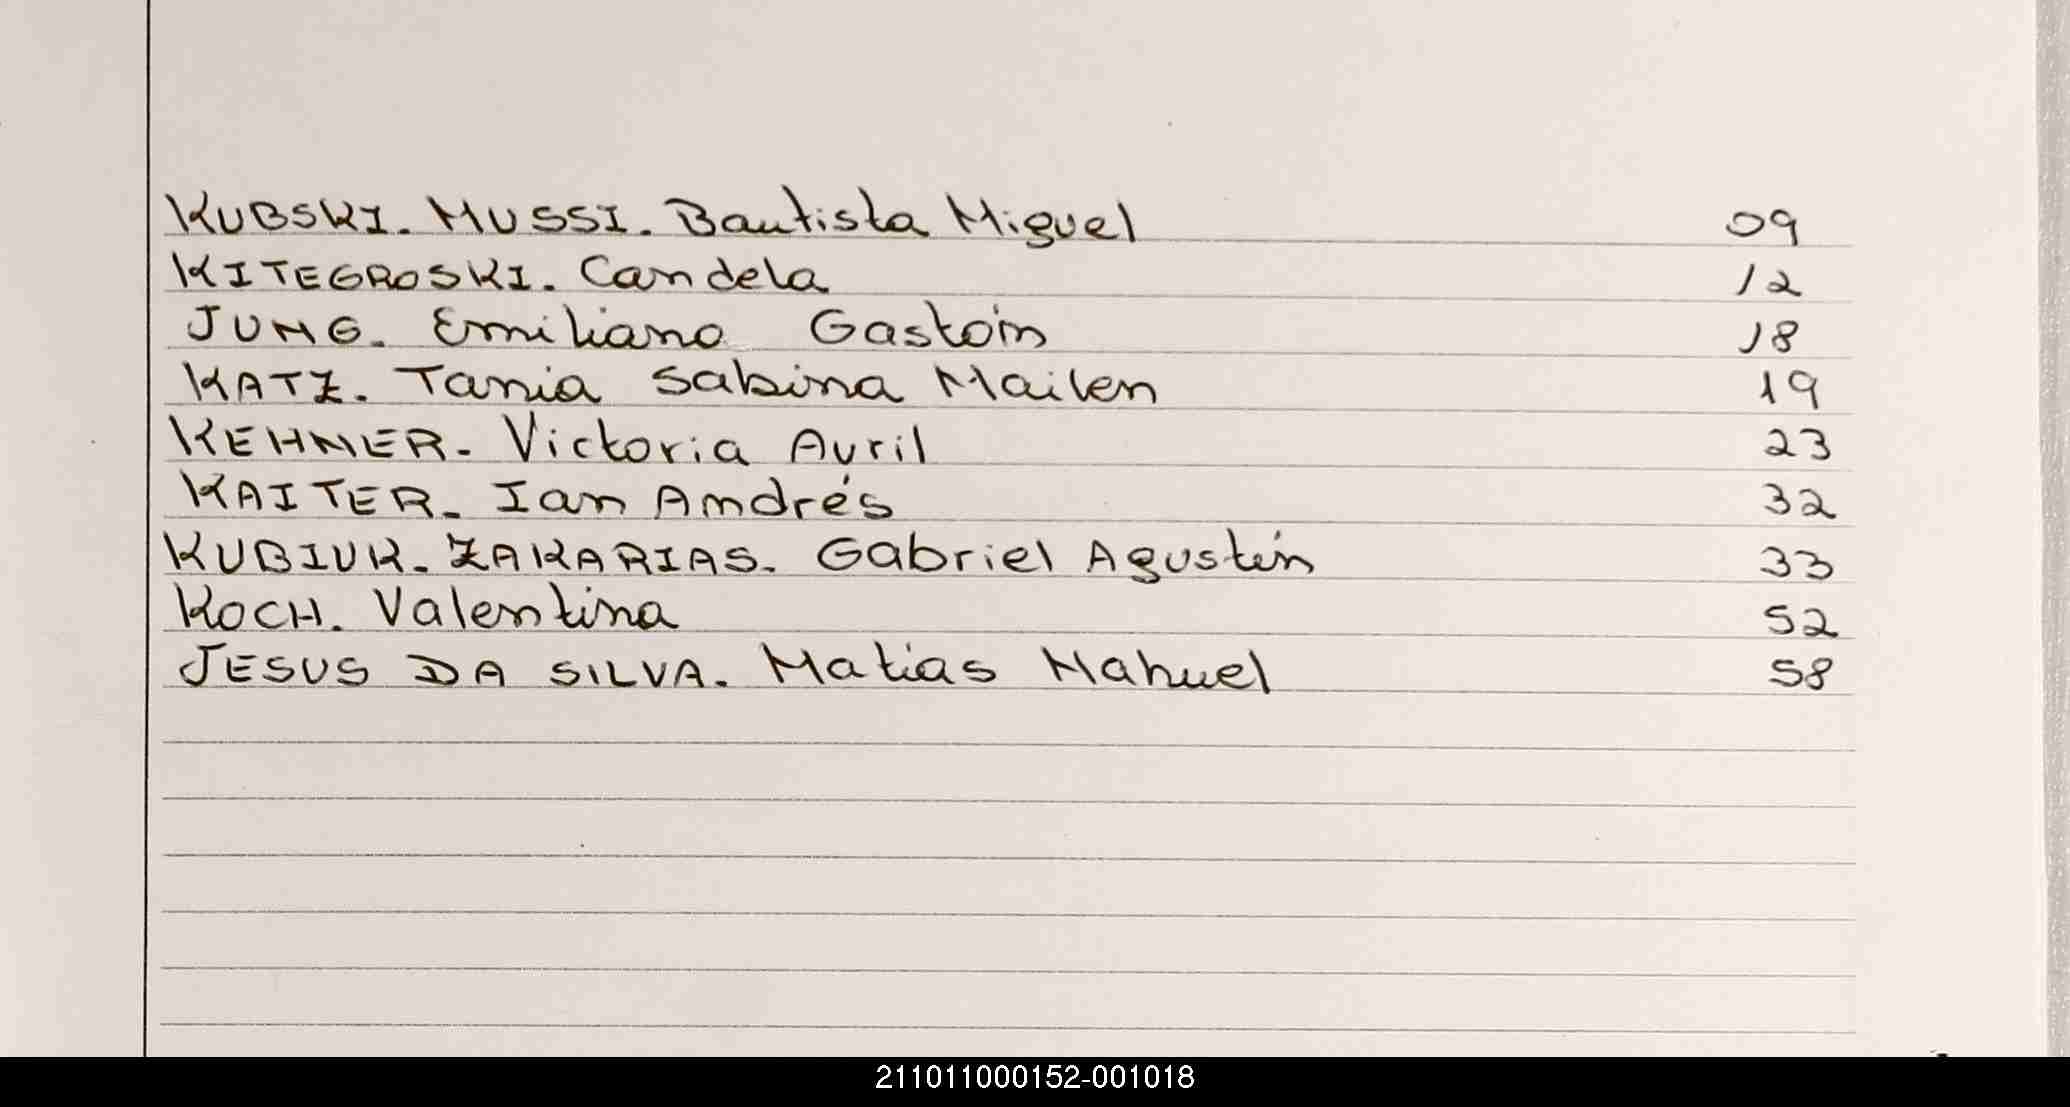 KUBSKI. MUSSI. Bautista Miguel 09
KITEGROSKI. Candela 12
JUNG. Emiliano Gastón 18
KATZ. Tania Sabina Mailen 19
KEHNER. Victoria Avril 23
KAITER. Ian Andrés 32
KUBIUK. ZAKARIAS. Gabriel Agustín 33
KOCH. Valentina 52
JESUS DA SILVA. Matias Nahuel 58
211011000152-001018